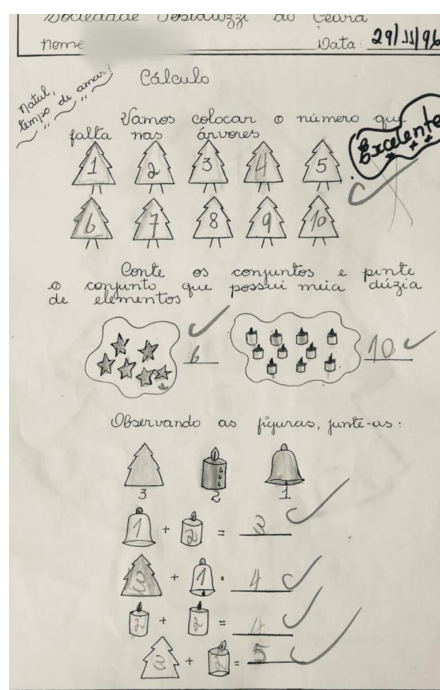 Sociedade Pestalozzi do Ceará
Nome
Data: 29/11/96
Natal,
tempo de amar!
Cálculo
Vamos colocar o número que
falta nas árvores
Excelente
1 2 3 4 5
6 7 8 9 10
Conte os conjuntos e pinte
o conjunto que possui meia dúzia
de elementos
6 10
Observando as figuras, junte-as:
3 2 1
1 + 2 = 3
3 + 1 = 4
2 + 2 = 4
3 + 2 = 5